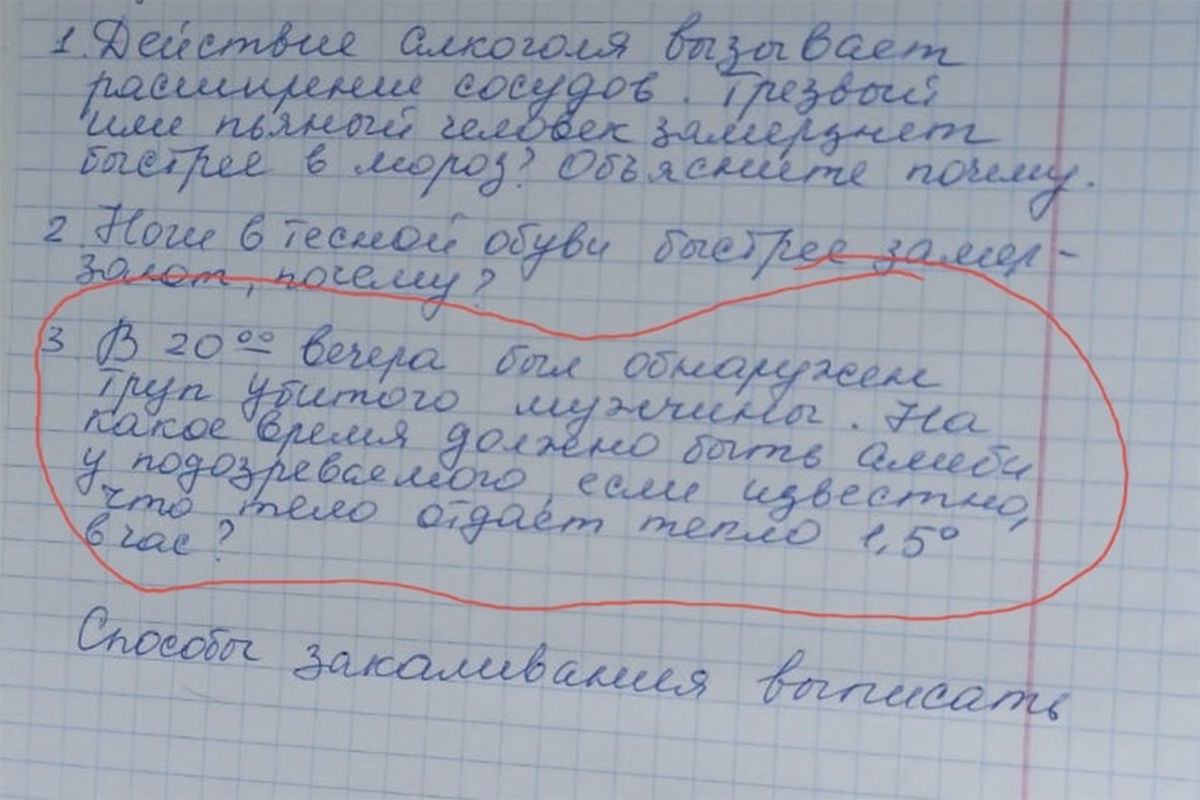 1. Действие алкоголя вызывает
расширение сосудов. Трезвый
или пьяный человек замерзнет
быстрее в мороз? Объясните почему.
2. Ноги в тесной обуви быстрее замер-
зают, почему?
3 В 20⁰⁰ вечера был обнаружен
труп убитого мужчины. На
какое время должно быть алиби
у подозреваемого, если известно,
что тело отдает тепло 1,5°
в час?
Способы закаливания выписать